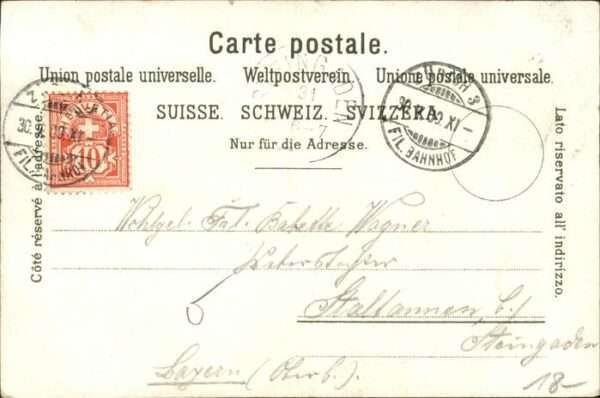 Carte postale.
Union postale universelle. Weltpostverein. Unione postale universale.
SUISSE. SCHWEIZ. SVIZZERA.
Nur für die Adresse.
Côté réservé à l'adresse.
Lato riservato all' indirizzo.
ZÜRICH 3
FIL. BAHNHOF
10
FIL. BAHNHOF
31
Wohlgeb. Frl. Babette Wagner
Staltannen, b/
Steingaden
Bayern (Oberb.).
18-